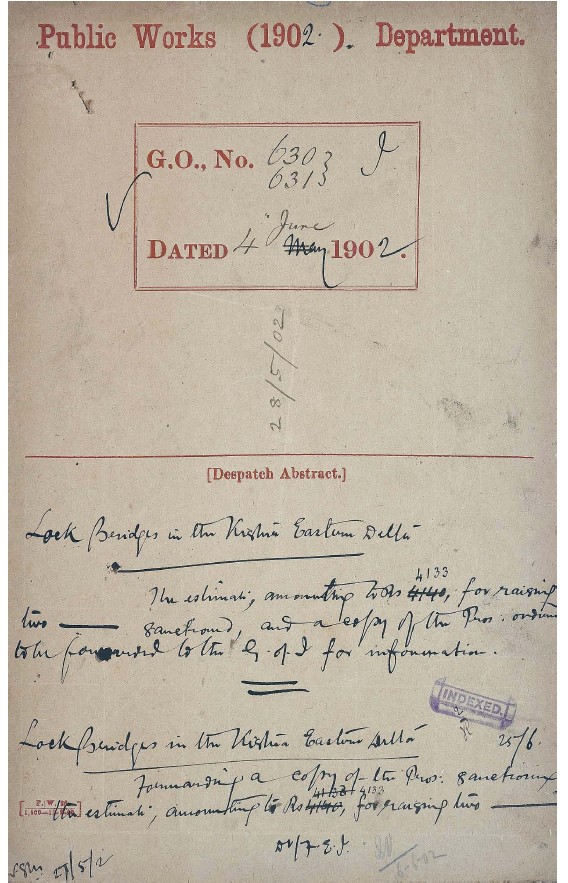 Public Works (1902.). Department.
G.O., No. 630 } I
631 }
DATED 4 June May 1902.
28/5/02
[Despatch Abstract.]
Lock Bridges in the Kistna Eastern Delta
4133
The estimate, amounting to Rs 4140, for raising
two —— sanctioned, and a copy of the Pros. ordered
to be forwarded to the G. of I for information.
INDEXED.
Lock Bridges in the Kistna Eastern Delta
25/6.
Forwarding a copy of the Pros. sanctioning
4133 4133
the estimate, amounting to Rs 4140, for raising two ——
27/5/2